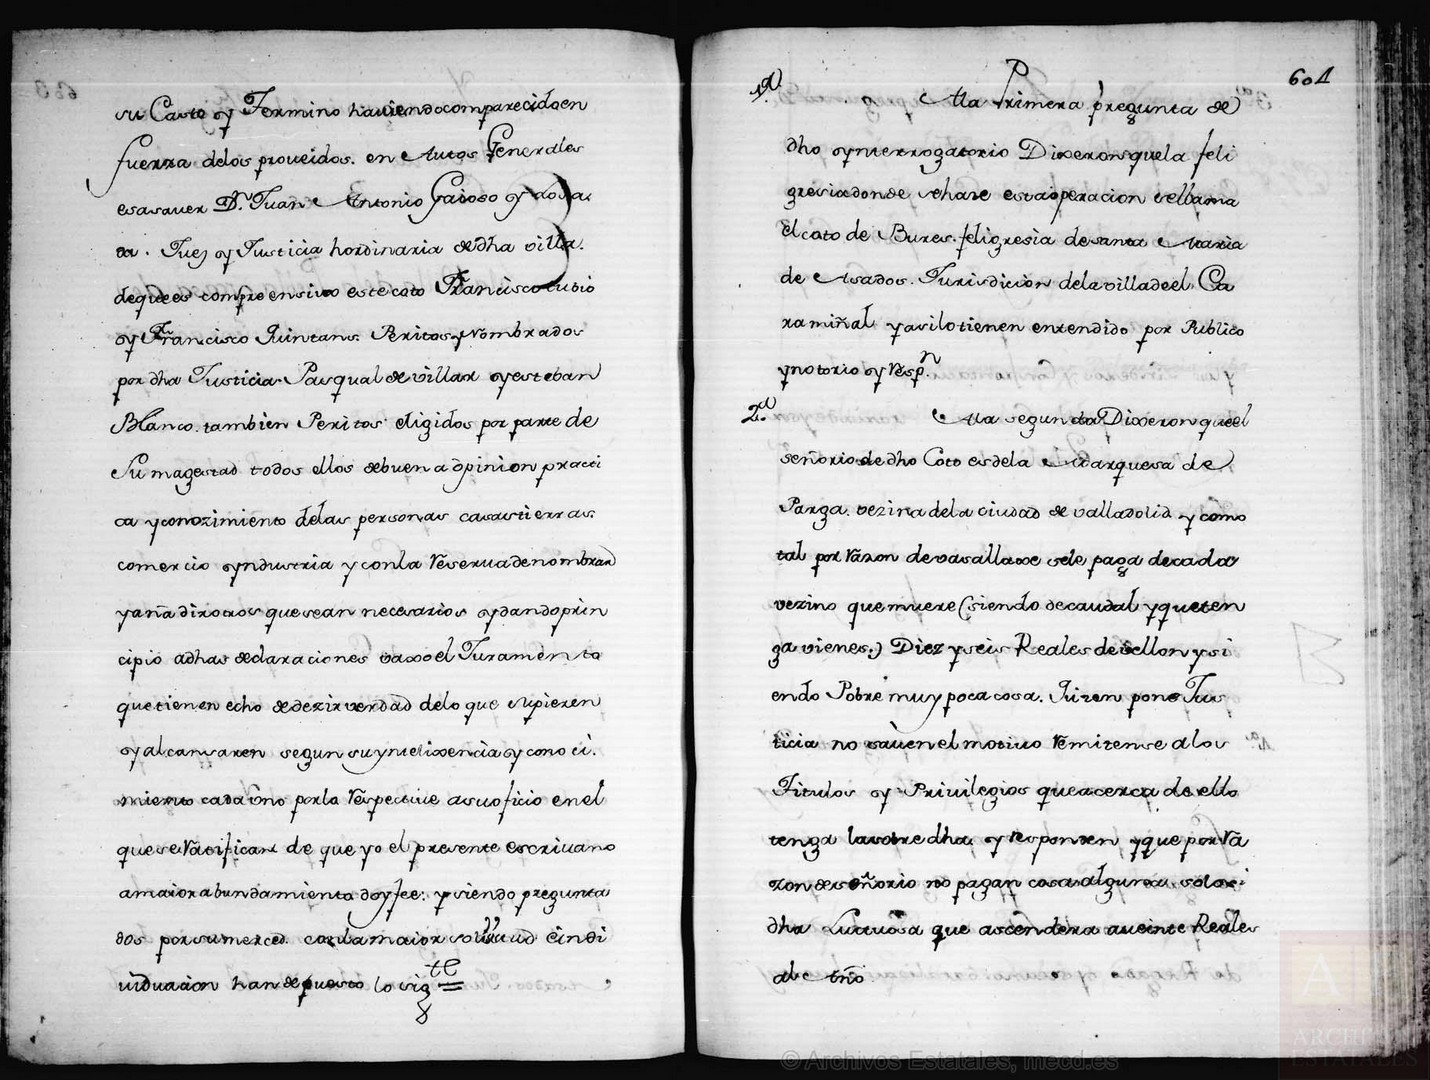 su Casto y Termino haviendo comparecido en
fuerza delos proveidos. en Autos Generales
esasaver Dn. Juan Antonio Gaioso y
Juez y Justicia hordinaria dedha villa.
dequees comprensivo este coto Francisco Rubio
y Franco Francisco Quintans. Peritos Nombrados
por dha Justicia. Pasqual de villar y esteban
Blanco. tambien Peritos eligidos por parte de
Su magestad todos ellos debuena opinion practi
ca y conozimiento delas personas casas tierras.
comercio yndustria y conla Reserva denombrar
yañadirotros quesean necesarios ydandoprin
cipio adhas declaraciones vaxoel Juramento
quetienen echo dedezirverdad delo que supieren
y alcansaren segun su yntelixencia y cono ci.
miento cadauno porlo Respective asuoficio enel
quese Ratifican de que yo el presente escrivano
amaiorabundamiento doyfee: ysiendo pregunta
dos porsumerced. conlamaior solicitud eindi
viduacion han depuesto lo sigte
604
1ª Ala Primera pregunta de
dho ynterrogatorio Dixeronquela feli
gresiadonde sehase estaoperacion sellama
el coto de Bures. feligresia desanta Maria
de Asados. Jurisdicion delavilladeel Ca
ramiñal yasilotienen entendido por Publico
ynotorio y Respn.
2ª Ala segunda Dixeron queel
señorio de dho Coto esdela Marquesa de
Parga. vezina dela ciudad de valladolid y como
tal por Razon devasallaxe sele paga decada
vezino que muere (siendo decaudal yqueten
ga vienes.) Diez yseis Reales devellon ysi
endo Pobre muy poca cosa. Quien pone Jus
ticia no saven el motivo Remitense alos
Titulos y Privilegios queacerca deello
tenga lasobredha y responden yque porRa
zon deseñorio no pagan cosaalguna. solo
dha Luctuosa que ascendera aveinte Reales
alctño.